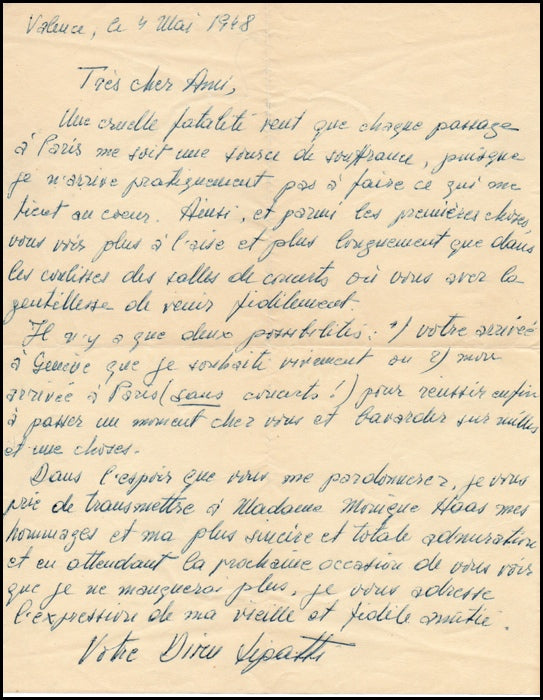 Valence, le 4 Mai 1948
Très cher Ami,
Une cruelle fatalité veut que chaque passage
à Paris me soit une source de souffrance, puisque
je n'arrive pratiquement pas à faire ce qui me
tient au coeur. Ainsi, et parmi les premières choses,
vous voir plus à l'aise et plus longuement que dans
les coulisses des salles de concerts où vous avez la
gentillesse de venir fidèlement
Il n'y a que deux possibilités : 1) votre arrivée
à Genève que je souhaite vivement ou 2) mon
arrivée à Paris (sans concerts !) pour réussir enfin
à passer un moment chez vous et bavarder sur milles
et une choses.
Dans l'espoir que vous me pardonnerez, je vous
prie de transmettre à Madame Monique Haas mes
hommages et ma plus sincère et totale admiration
et en attendant la prochaine occasion de vous voir
que je ne manquerai plus, je vous adresse
l'expression de ma vieille et fidèle amitié.
Votre Dinu Lipatti